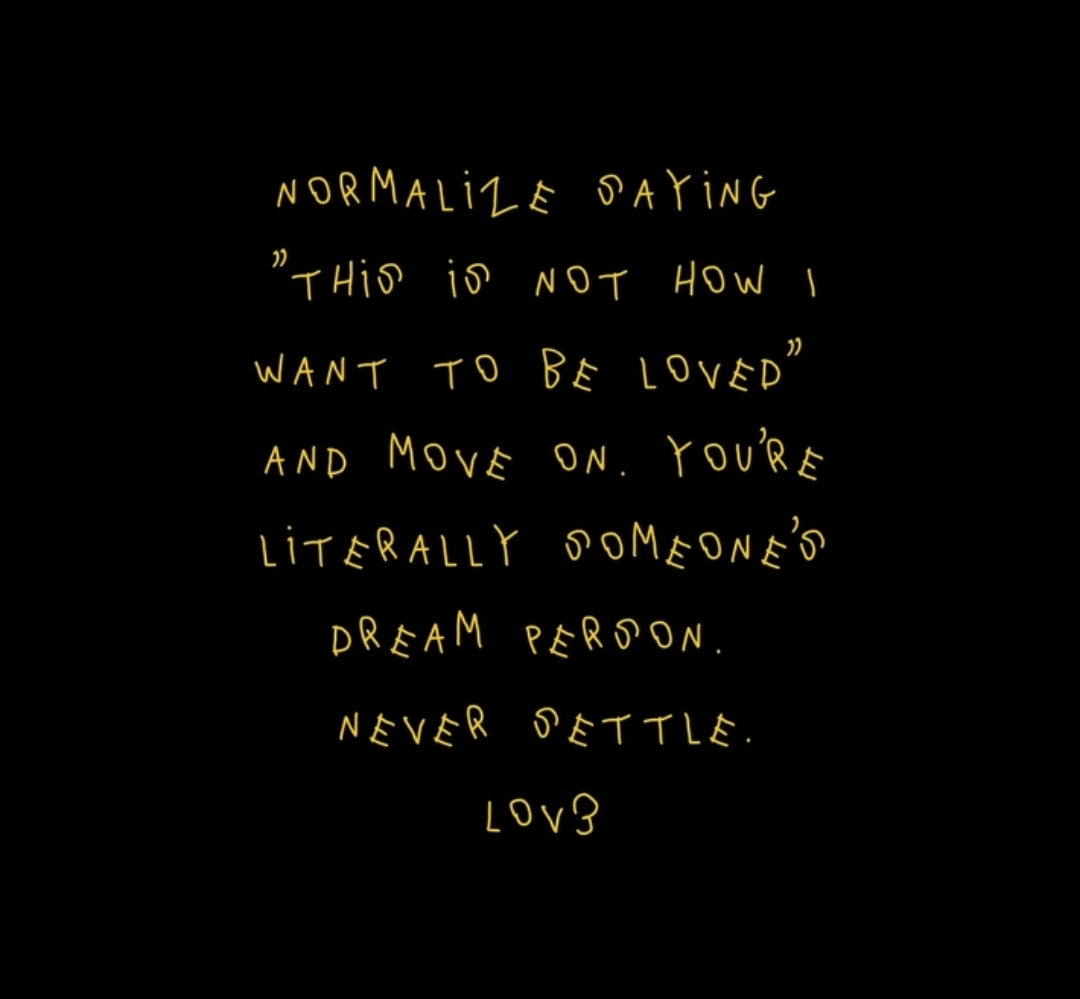 NORMALiZE SAYiNG
”THiS iS NOT HOW I
WANT TO BE LOVED”
AND MOVE ON. YOU’RE
LiTERALLY SOMEONE’S
DREAM PERSON.
NEVER SETTLE.
LOV3